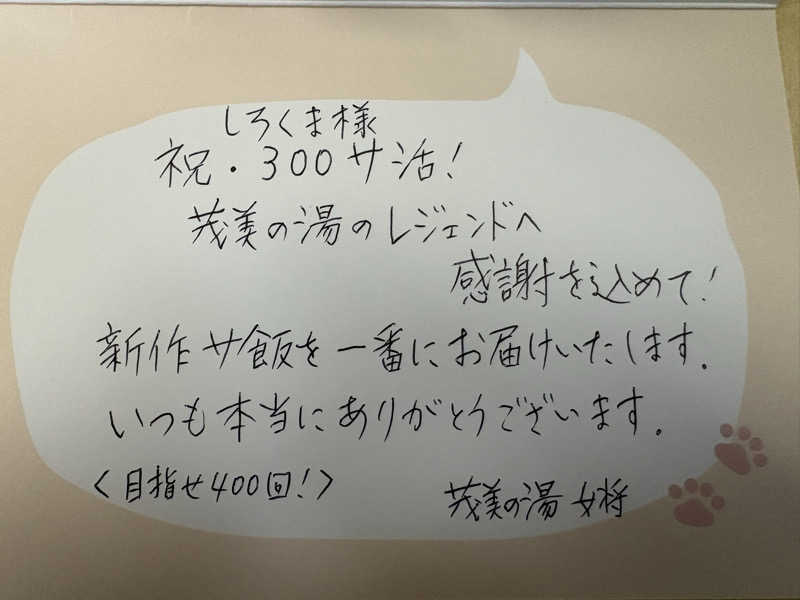 しろくま様
祝・300サ活!
茂美の湯のレジェンドへ
感謝を込めて!
新作サ飯を一番にお届けいたします.
いつも本当にありがとうございます.
<目指せ400回!>
茂美の湯 女将